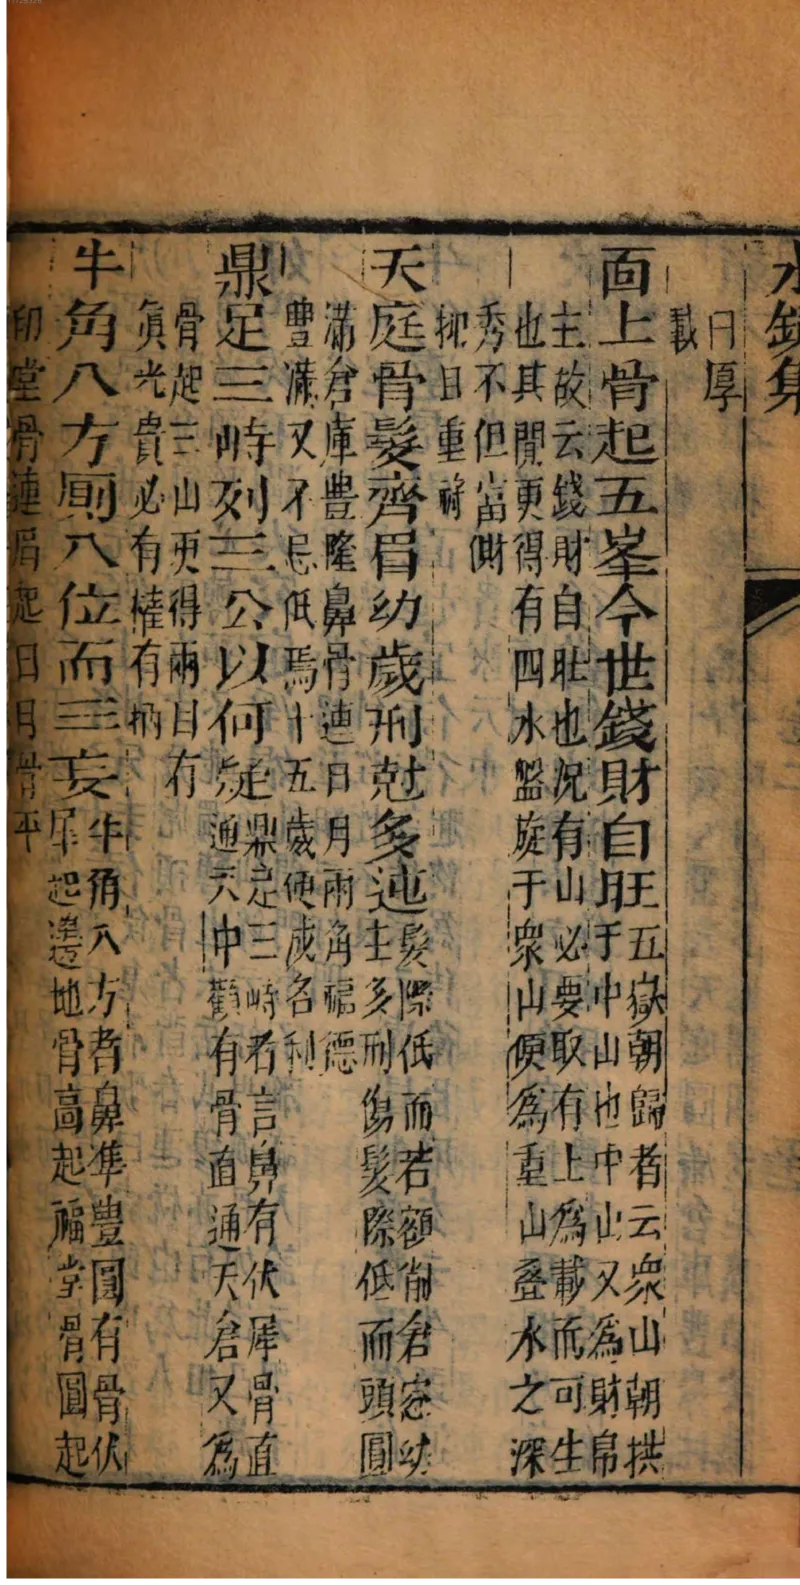 水鏡集
曰厚
載
面上骨起五峯今世錢財自旺五嶽朝歸者云衆山朝拱
于中山也中山又為財帛
主故云錢財自壯也況有山必要取有上為載而可生
也其閒更得有四水盤旋于衆山便為重山叠水之深
秀不但富財
抑且重祿
天庭骨髮齊眉幼歲刑尅多連髮際低而若額削倉窓幼
主多刑傷髮際低而頭圓
滿倉庫豊隆鼻骨連日月兩角福德
豐滿又不忌低焉十五歲便成名利
鼎足三峙列三公以何疑鼎足三峙者言鼻有伏犀骨直
通天中觀有骨直通天倉又為
骨起三山更得兩目有
眞光貴必有權有柄
牛角八方厠八位而三妄牛角八方者鼻準豊圓有骨伏
犀起邊地骨高起福堂骨圓起
印堂骨連眉起日月骨平